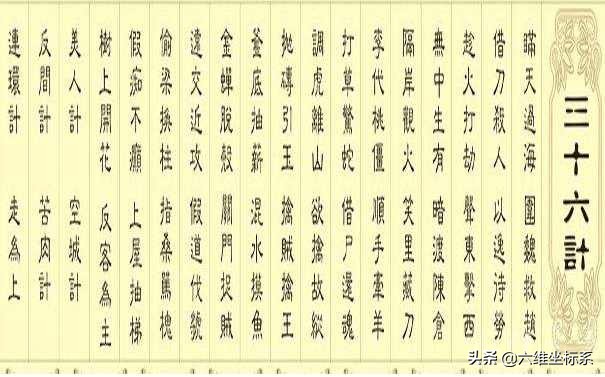 三十六計
瞞天過海 圍魏救趙
借刀殺人 以逸待勞
趁火打劫 聲東擊西
無中生有 暗渡陳倉
隔岸觀火 笑里藏刀
李代桃僵 順手牽羊
打草驚蛇 借尸還魂
調虎離山 欲擒故縱
拋磚引玉 擒賊擒王
釜底抽薪 混水摸魚
金蟬脫殼 關門捉賊
遠交近攻 假道伐虢
偷梁換柱 指桑罵槐
假痴不癲 上屋抽梯
樹上開花 反客為主
美人計 空城計
反間計 苦肉計
連環計 走為上
头条 @六维坐标系